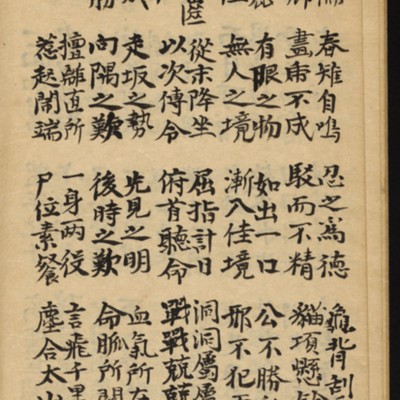 春雉自鳴 忍之爲德 龜背刮
畫虎不成 駁而不精 猫項懸
有眼之物 如出一口 公不勝
無人之境 漸入佳境 邪不犯
從末降坐 屈指計日 洞洞屬屬
以次傳令 俯首聽命 戰戰兢兢
走坂之勢 先見之明 血氣所
向隅之歎 後時之歎 命脈所
擅離直所 一身兩役 言飛千里
惹起鬧端 尸位素餐 塵合太山